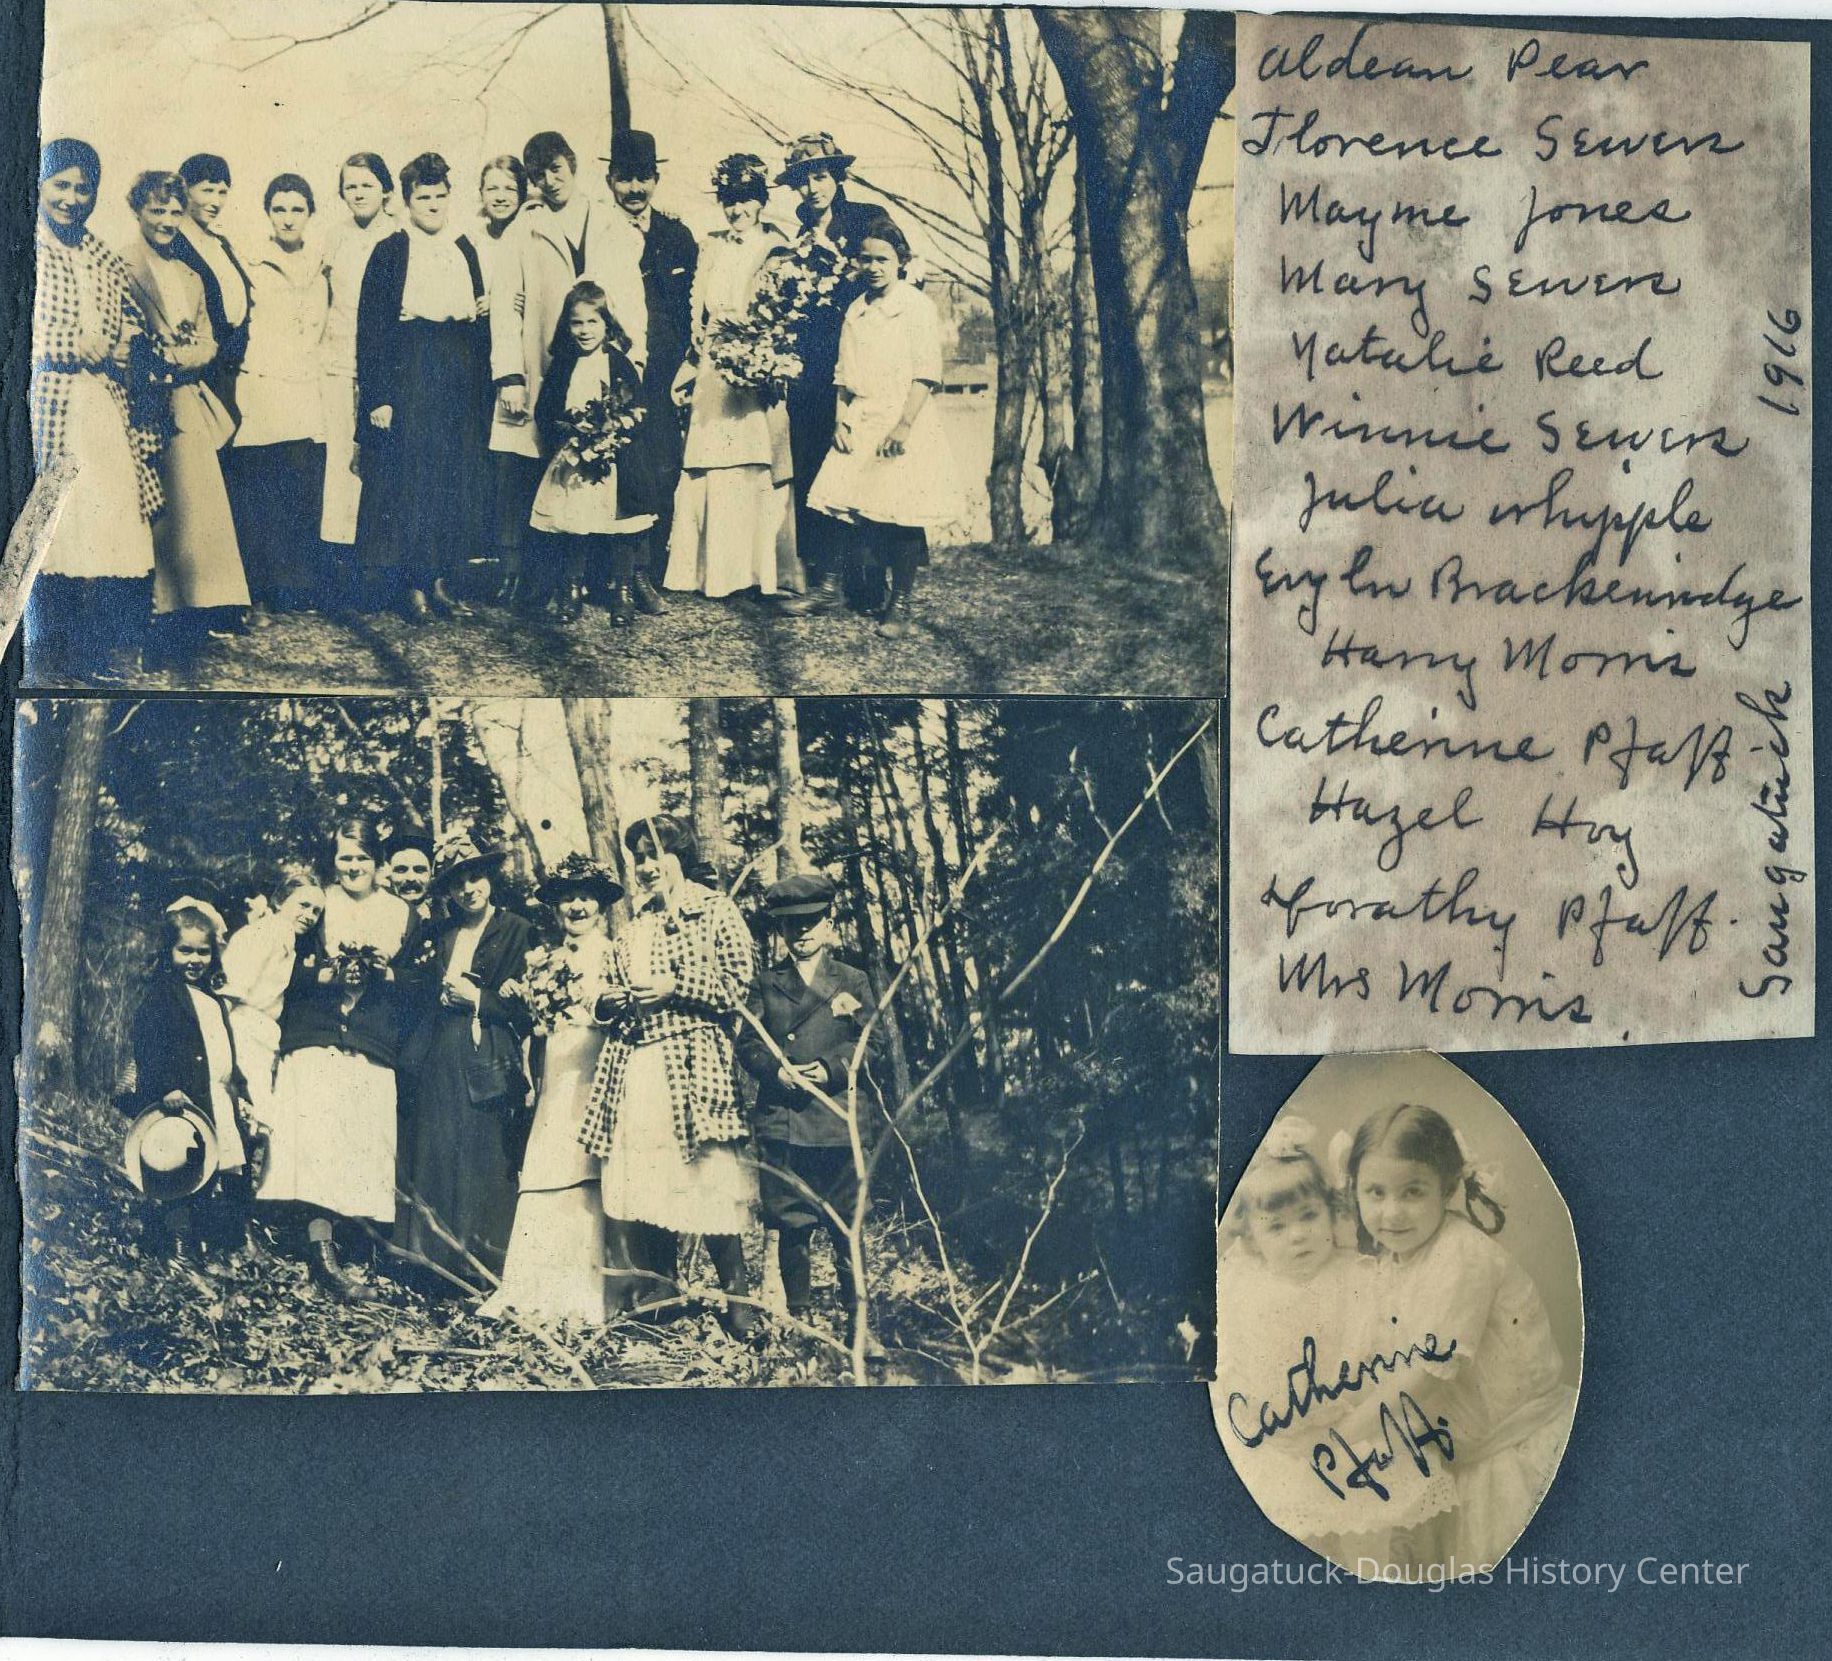 Aldean Pear
Florence Sewers
Mayme Jones
Mary Sewers
Natalie Reed
Winnie Sewers
Julia Whipple
Evyln Brackenridge
Harry Morris
Catherine Pfaff
Hazel Hoy
Dorathy Pfaff.
Mrs Morris.
Saugatuck 1916
Catherine
Pfaff.
Saugatuck-Douglas History Center